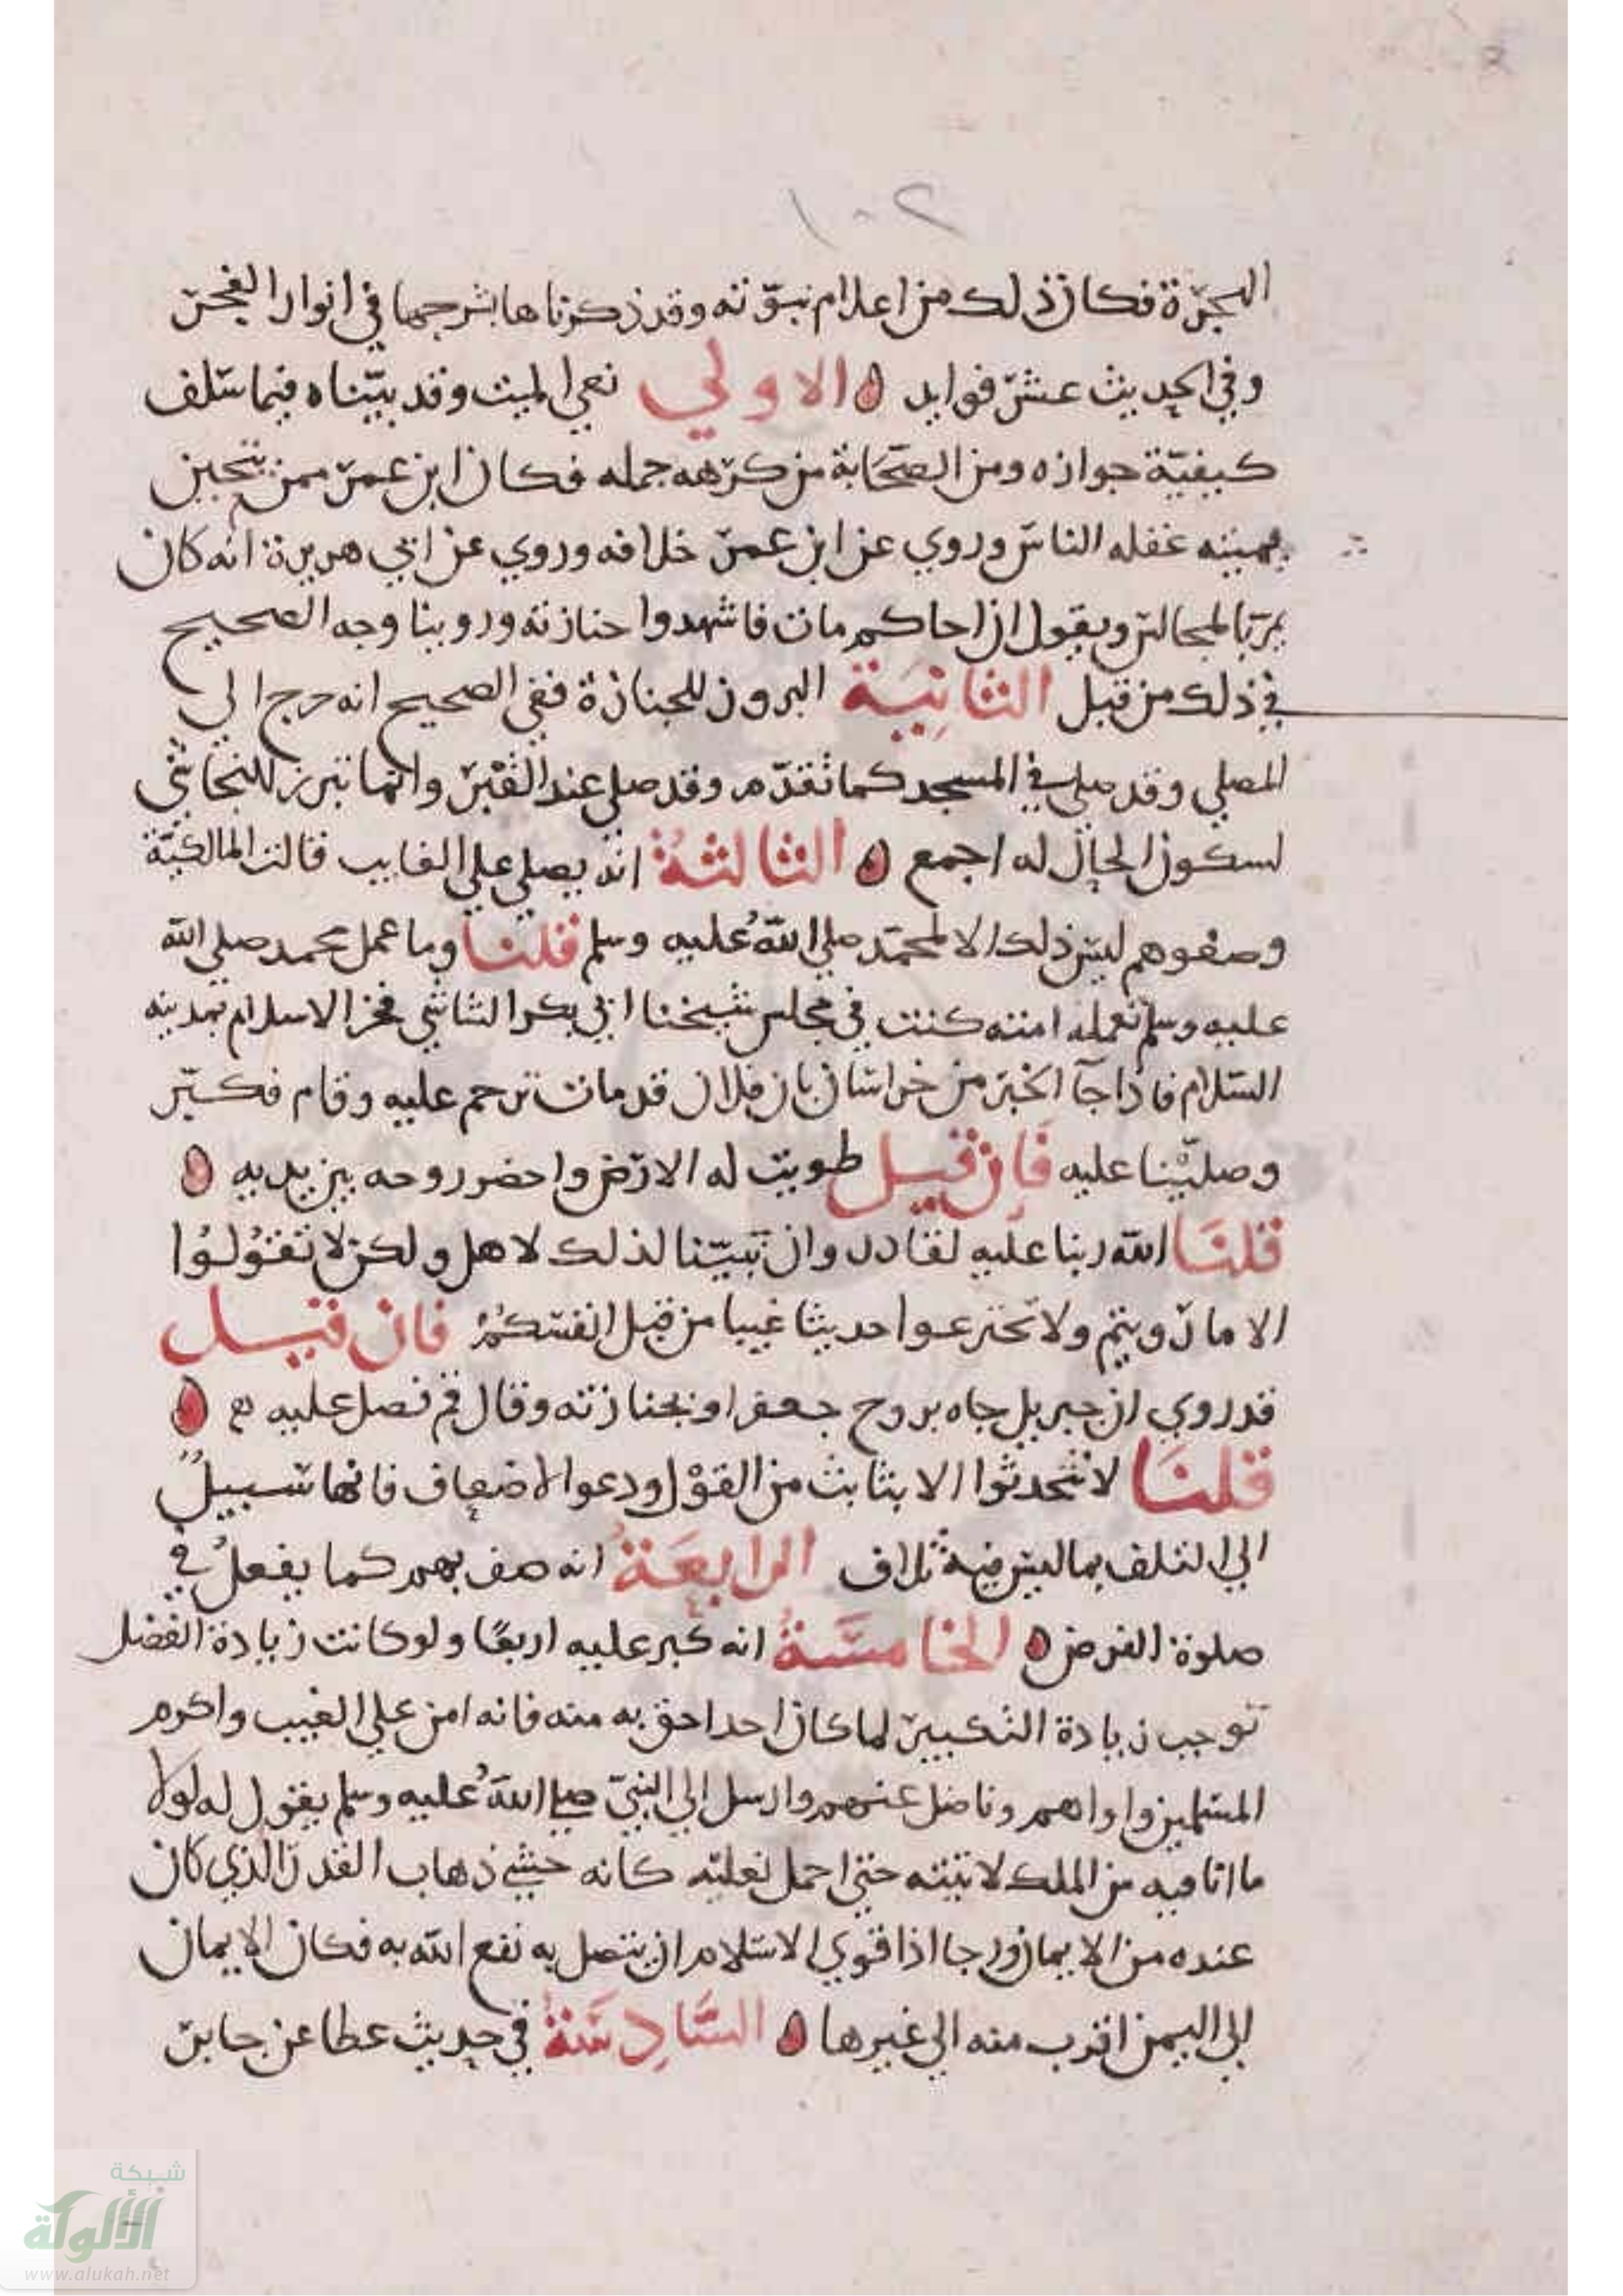 ١٠٢
الهجرة فكان ذلك من اعلام نبوته وقد ذكرناها بشرحها في انوار الفجر
وفي الحديث عشر فوايد الاولي نعي الميت وقد بيناه فيما سلف
كيفية جوازه ومن الصحابة من كرهه جمله فكان ابن عمر ممن يتحين
بميته غفله الناس وروي عن ابن عمر خلافه وروي عن ابي هريرة انه كان
يمر بالمجالس ويقول ان اخاكم مات فاشهدوا جنازته وروينا وجه الصحيح
في ذلك من قبل الثانية البروز للجنازة ففي الصحيح انه خرج الي
المصلي وقد صلي في المسجد كما تقدم وقد صلي عند القبر وانما تبرز للنجاشي
لسكون الحال له اجمع الثالثة انه يصلي علي الغايب قالت المالكية
وصفوهم ليس ذلك الا لمحمد صلي الله عليه وسلم قلنا وما عمل محمد صلي الله
عليه وسلم تعمله امته كنت في مجلس شيخنا ابي بكر الشاشي فخر الاسلام بمدينه
السلام فاذا جآ الخبر من خراسان بان فلان قد مات ترحم عليه وقام فكبر
وصلينا عليه فان قيل طويت له الارض واحضر روحه بين يديه
قلنا الله ربنا عليه لقادر وان نبينا لذلك لاهل ولكن لا تقولوا
الا ما رويتم ولا تخترعوا حديثا غيبا من قبل انفسكم فان قيل
قد روي ان جبريل جاه بروح جعفر او بجنازته وقال قم فصل عليه
قلنا لا تتحدثوا الا بثابت من القول ودعوا الاضعاف فانها سبيل
الي التلف بما ليس فيه تلاف الرابعة انه صف بهم كما يفعل في
صلوة الفرض الخامسة انه كبر عليه اربعا ولو كانت زيادة الفضل
توجب زيادة التكبير لما كان احد احق به منه فانه امن علي الغيب واكرم
المسلمين واواهم وناضل عنهم وارسل الي النبي صلي الله عليه وسلم يقول له لولا
ما انا فيه من الملك لاتيته حتي احمل نعليه كانه خشي ذهاب القدر الذي كان
عنده من الايمان ورجا اذا قوي الاسلام ان يتصل به نفع الله به فكان الايمان
الي اليمن اقرب منه الي غيرها السادسة في حديث عطا عن جابر
شبكة
الألوكة
www.alukah.net